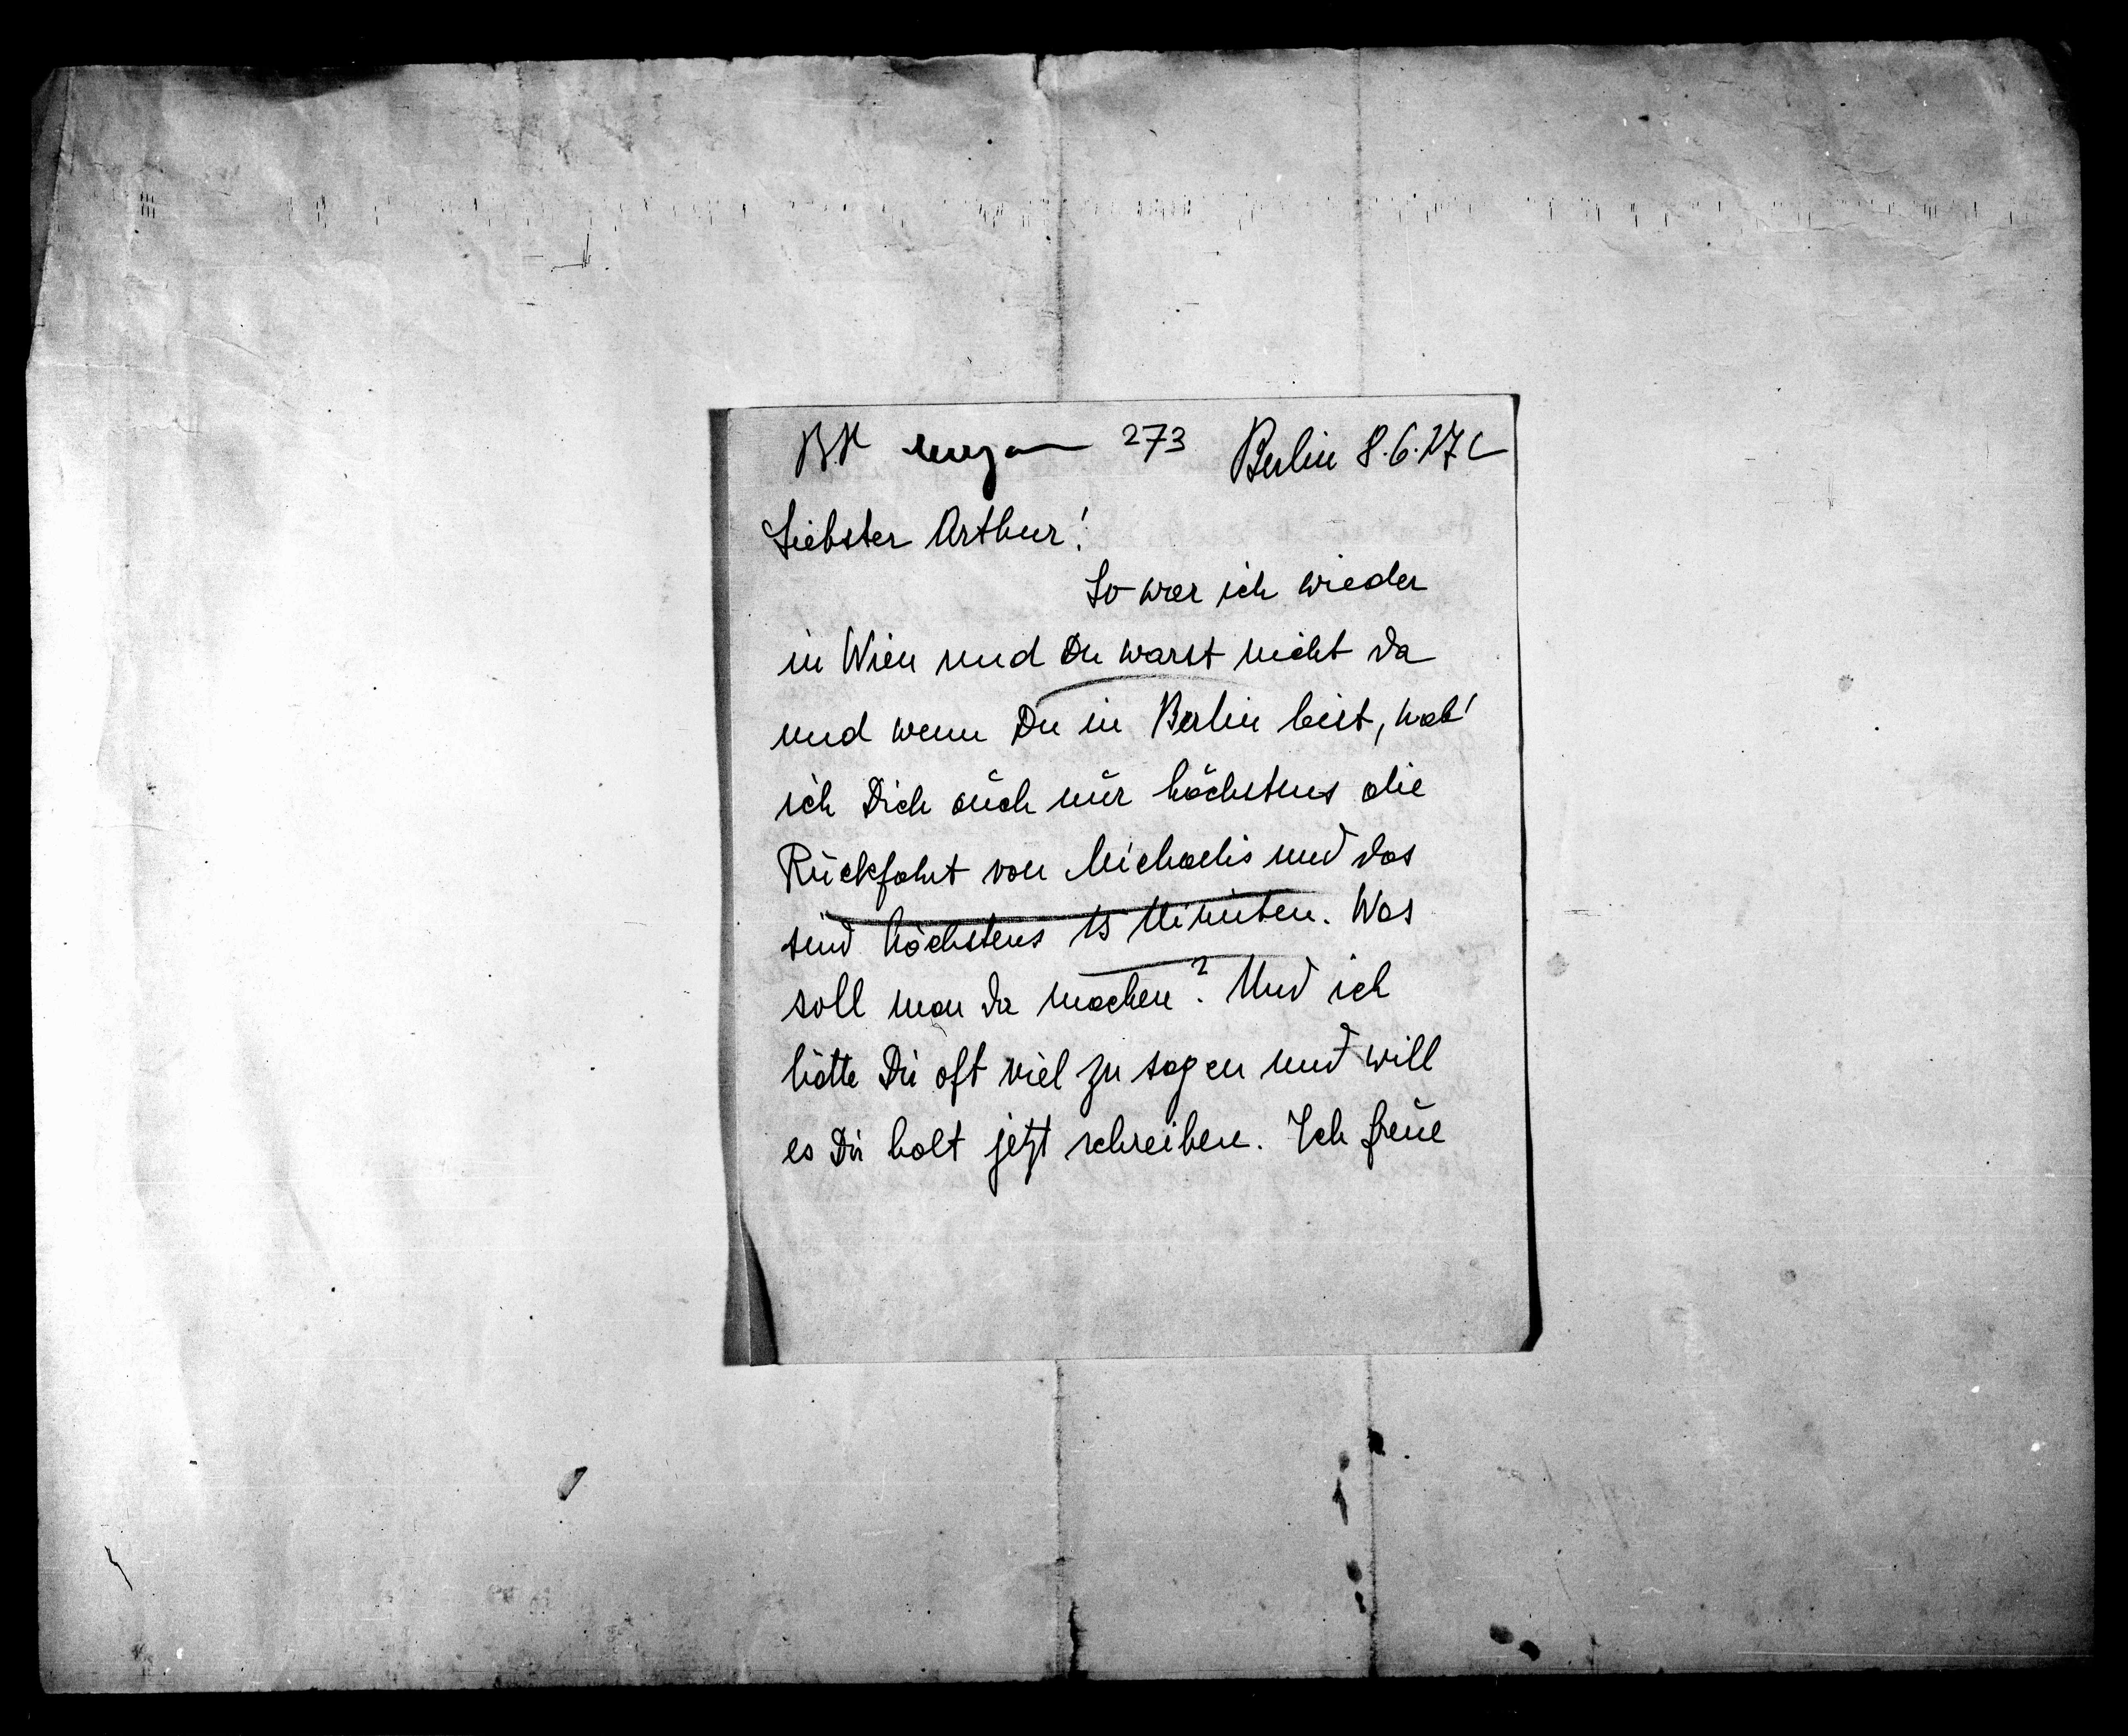 273 Berlin 8.6.27
Liebster Arthur!
So war ich wieder
in Wien und Du warst nicht da
und wenn Du in Berlin bist, hab'
ich Dich auch nur höchstens die
Rückfahrt von Michaelis und das
sind höchstens 15 Minuten. Was
soll man da machen? Und ich
hätte Dir oft viel zu sagen und will
es Dir halt jetzt schreiben. Ich freue